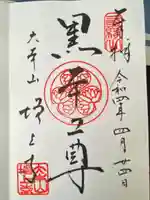 奉拝
令和四年四月廿四日
黒本尊
大本山
増上寺